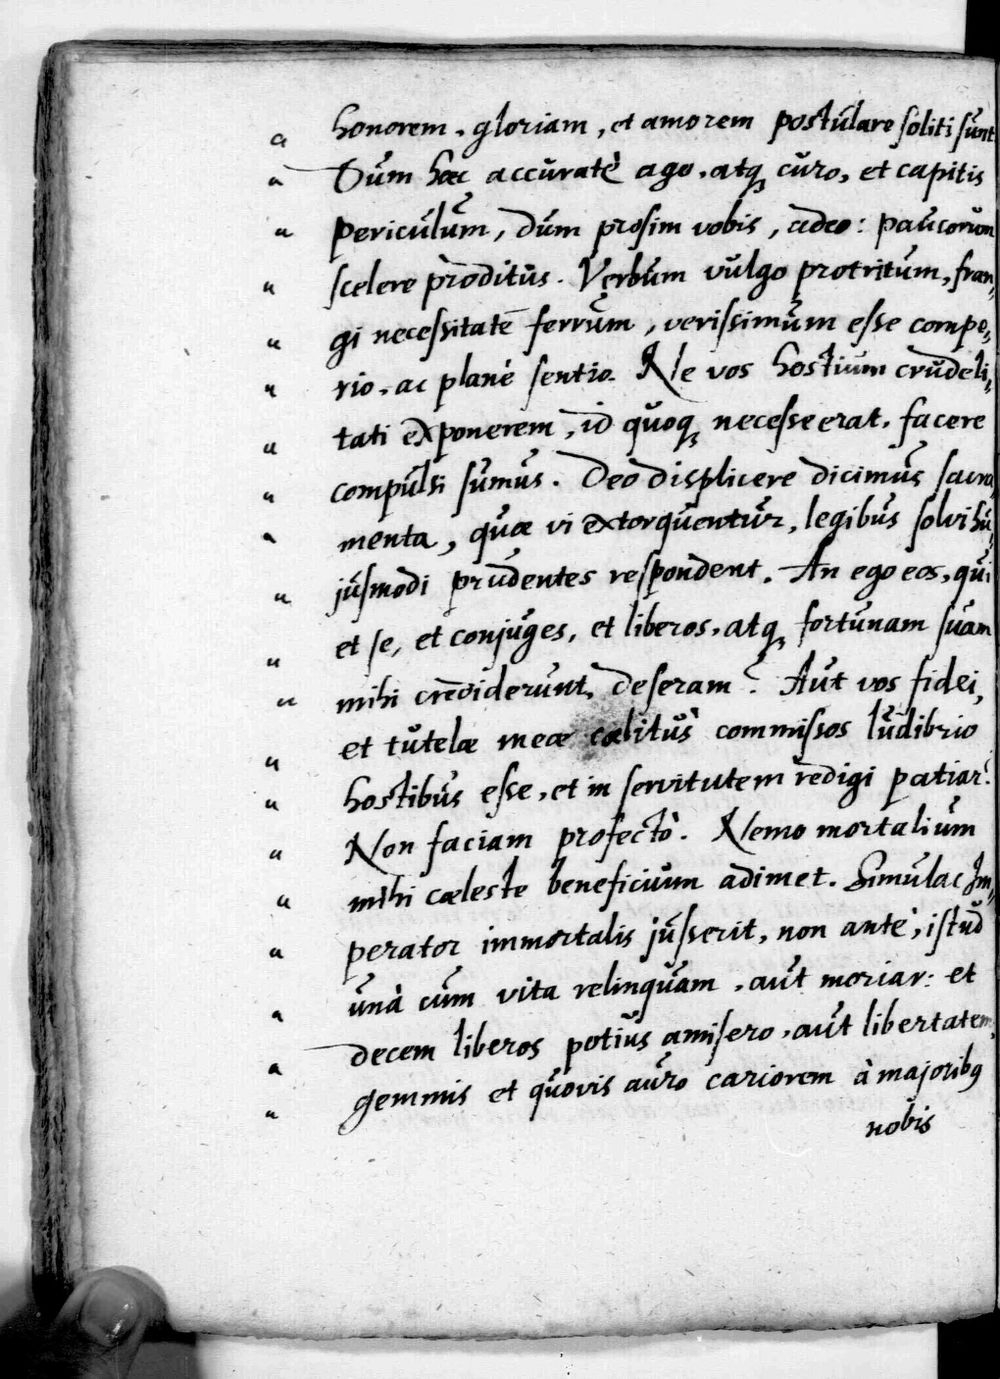 " honorem, gloriam, et amorem postulare soliti sunt
" Dum hæc accuratè ago, atq; curo, et capitis
" periculum, dum prosim vobis, adeo: paucorum
" scelere proditus. Verbum vulgo protritum, fran,
" gi necessitatē ferrum, verissimum esse compe,
" rio, ac planè sentio. Ne vos hostium crudeli,
" tati exponerem, id quoq; necesse erat, facere
" compulsi sumus. Deo displicere dicimus sacra,
" menta, quæ vi extorquentur, legibus solvi hu,
" jusmodi prudentes respondent. An ego eos, qui
" et se, et conjuges, et liberos, atq; fortunam suam
" mihi crediderunt, deseram? Aut vos fidei,
" et tutelæ meæ cælitus commissos ludibrio
" hostibus esse, et in servitutem redigi patiar?
" Non faciam profectò. Nemo mortalium
" mihi cæleste beneficium adimet. Simulac Im,
" perator immortalis jusserit, non antè, istud
" unà cum vita relinquam, aut moriar: et
" decem liberos potius amisero, aut libertatem,
" gemmis et quovis auro cariorem à majoribus
nobis